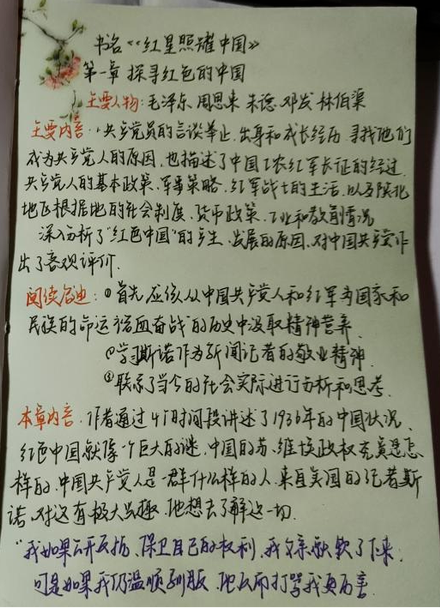 书名《《红星照耀中国》
第一章 探寻红色的中国
主要人物:毛泽东 周恩来 朱德 邓发 林伯渠
主要内容:共产党员的言谈举止、出身和成长经历、寻找他们
成为共产党人的原因,也描述了中国工农红军长征的经过
共产党人的基本政策、军事策略、红军战士的生活,以及陕北
地区根据地的社会制度、货币政策、工业和教育情况
深入分析了"红色中国"的产生、发展的原因,对中国共产党作
出了客观评价.
阅读启迪:①首先应该从中国共产党人和红军为国家和
民族的命运浴血奋战的历史中汲取精神营养
②学习斯诺作为新闻记者的敬业精神
③联系了当今的社会实际进行分析和思考.
本章内容:作者通过4个时间段讲述了1936年的中国状况、
红色中国就像一个巨大的谜,中国的苏维埃政权究竟是怎
样的,中国共产党人是一群什么样的人,来自美国的记者斯
诺,对这有极大兴趣,他想去了解这一切.
"我如果公开反抗,保卫自己的权利,我父亲就软了下来,
可是如果我仍温顺驯服,他反而打骂我更厉害